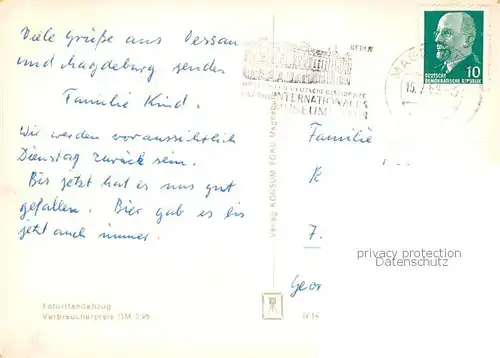 Viele Grüße aus Dessau
und Magdeburg senden
Familie Kind.
Wir werden voraussichtlich
Dienstag zurück sein.
Bis jetzt hat es uns gut
gefallen. Bier gab es bis
jetzt auch immer.
Foto-Handabzug
Verbraucherpreis DM 0,95
Verlag KONSUM FOKU Magdeburg
BERLIN
INTERNATIONALES
MUSEUM
MAGD
15.
10
DEUTSCHE
DEMOKRATISCHE REPUBLIK
Familie
K
7.
Geor
privacy protection